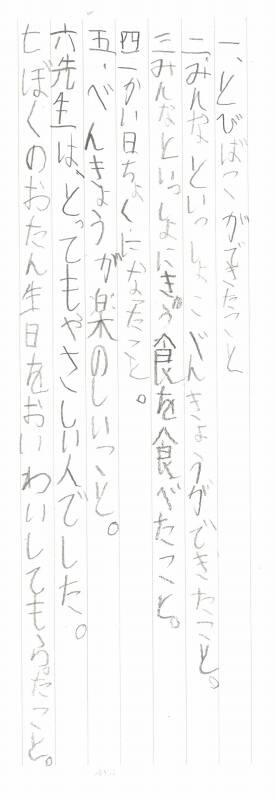 一、とびばこができたこと
二、みんなといっしょにべんきょうができたこと。
三みんなといっしょにぎう食を食べたこと。
四一かい日ちょくになったこと。
五、べんきょうが楽のしいこと。
六先生は、とってもやさしい人でした。
七ぼくのおたん生日をおいわいしてもらたこと。